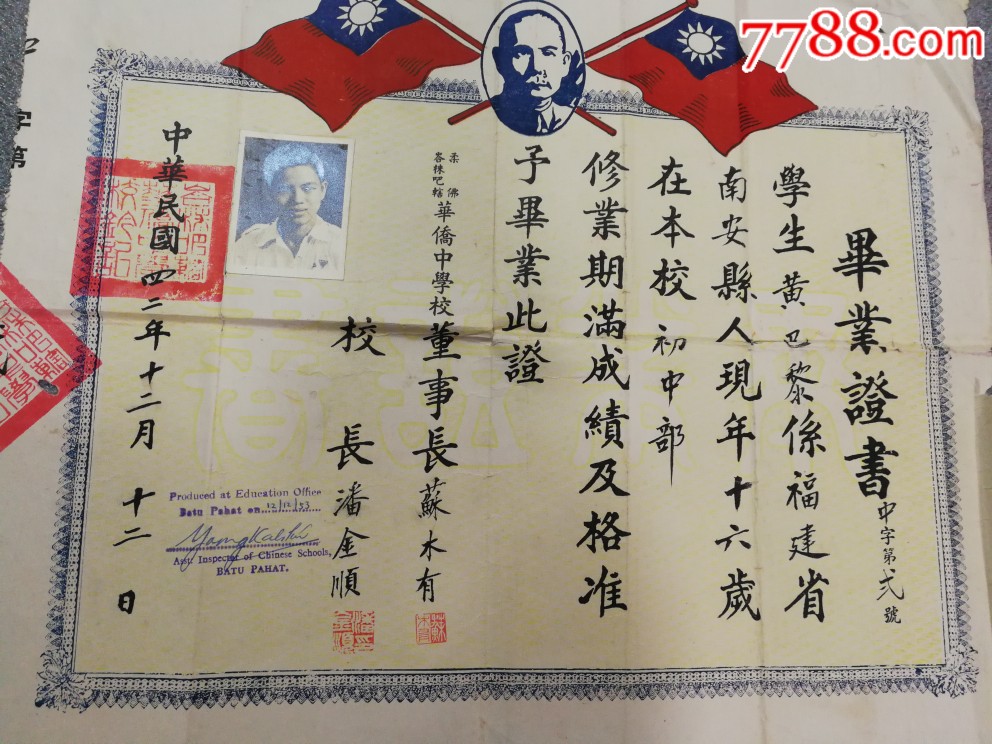 7788.com
畢業證書
中字第弍號
學生黄巴黎係福建省
南安縣人現年十六歲
在本校初中部
修業期滿成績及格准
予畢業此證
柔佛
峇株吧轄
華僑中學校董事長蘇木有
校長潘金順
中華民國四二年十二月十二日
Produced at Education Office
Batu Pahat on 12/12/53
Asst. Inspector of Chinese Schools,
BATU PAHAT.
字第